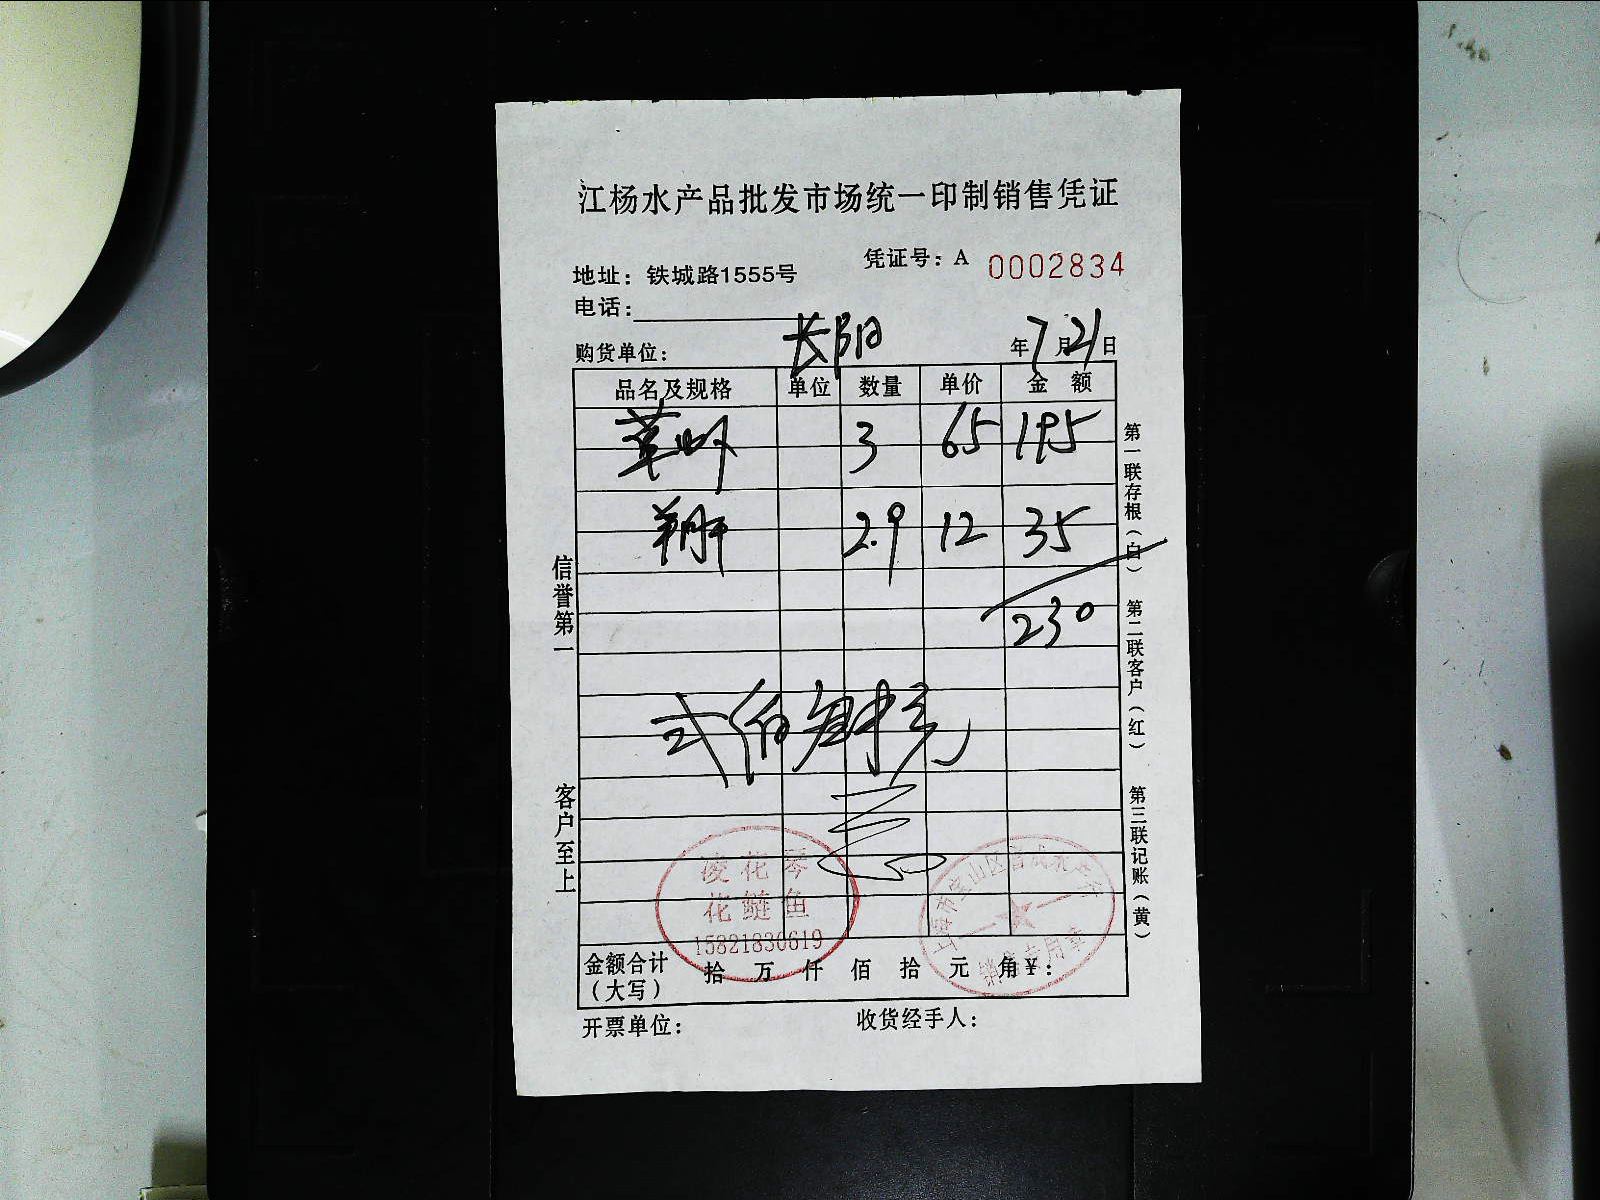 江杨水产品批发市场统一印制销售凭证
凭证号：A 0002834
地址：铁城路1555号
电话：
购货单位： 长阳 年7月21日
品名及规格 单位 数量 单价 金额
草虾 3 65 195
2.9 12 35
230
式佰叁拾元
信誉第一
客户至上
第一联存根（白）
第二联客户（红）
第三联记账（黄）
凌花琴
花鲢鱼
15821830619
上海市宝山区
水产行
销售专用章
金额合计（大写） 拾 万 仟 佰 拾 元 角 ¥：
开票单位： 收货经手人：